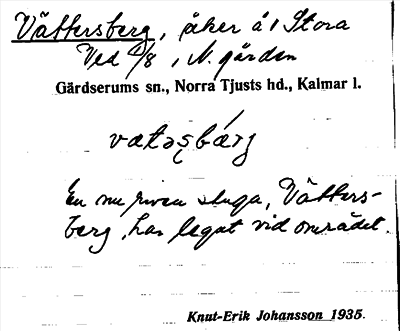 Vättersberg, åker å 1 Stora
Ved 1/8, N. gården
Gärdserums sn., Norra Tjusts hd., Kalmar l.
vætəşbǽrg
En nu riven stuga, Vätters-
berg, har legat vid området.
Knut-Erik Johansson 1935.